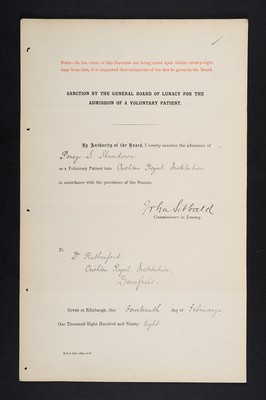 NOTE.—In the event of this Sanction not being acted upon within twenty-eight
days from date, it is requested that intimation of the fact be given to the Board.
SANCTION BY THE GENERAL BOARD OF LUNACY FOR THE
ADMISSION OF A VOLUNTARY PATIENT.
By Authority of the Board, I hereby sanction the admission of
Percy S.
as a Voluntary Patient into Crichton Royal Institution
in accordance with the provisions of the Statute.
John Sibbald
Commissioner in Lunacy.
To
Dr Rutherford,
Crichton Royal Institution,
Dumfries.
Given at Edinburgh, this Fourteenth day of February
One Thousand Eight Hundred and Ninety-eight.